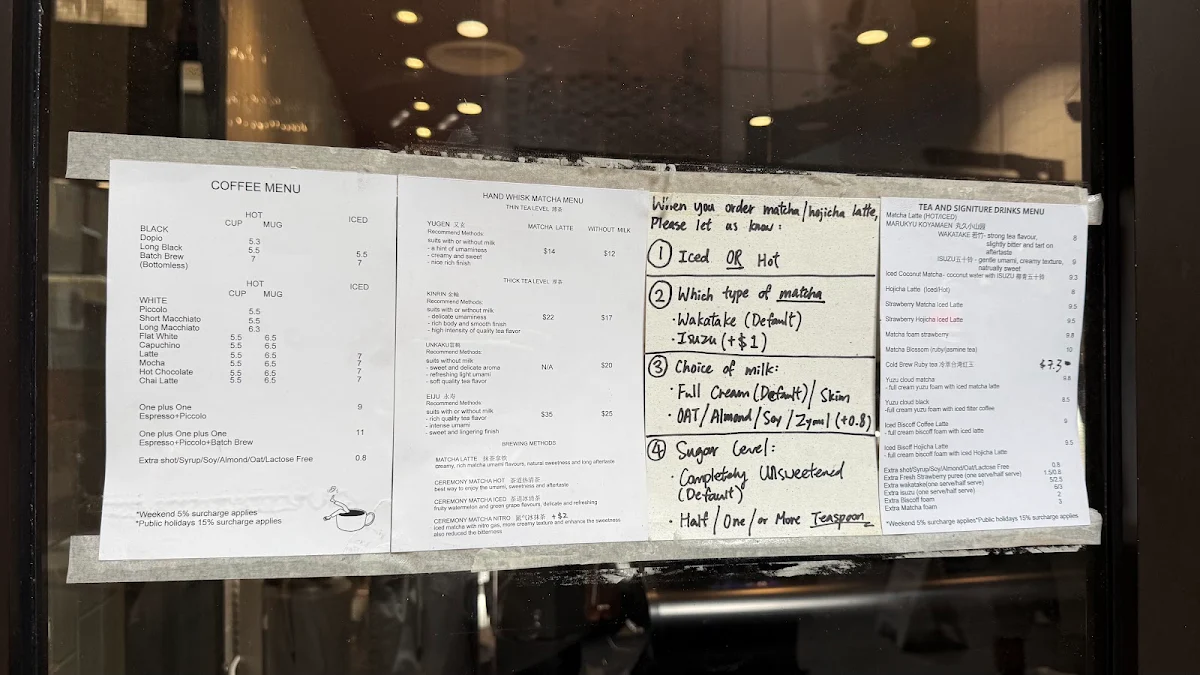 COFFEE MENU
HOT ICED
CUP MUG
BLACK
Dopio 5.3
Long Black 5.5 5.5
Batch Brew 7 7
(Bottomless)
HOT ICED
CUP MUG
WHITE
Piccolo 5.5
Short Macchiato 5.5
Long Macchiato 6.3
Flat White 5.5 6.5
Capuchino 5.5 6.5
Latte 5.5 6.5 7
Mocha 5.5 6.5 7
Hot Chocolate 5.5 6.5 7
Chai Latte 5.5 6.5 7
One plus One 9
Espresso+Piccolo
One plus One plus One 11
Espresso+Piccolo+Batch Brew
Extra shot/Syrup/Soy/Almond/Oat/Lactose Free 0.8
*Weekend 5% surcharge applies
*Public holidays 15% surcharge applies
HAND WHISK MATCHA MENU
THIN TEA LEVEL 薄茶
MATCHA LATTE WITHOUT MILK
YUGEN 又玄
Recommend Methods:
suits with or without milk
- a hint of umaminess $14 $12
- creamy and sweet
- nice rich finish
THICK TEA LEVEL
KINRIN 金輪
Recommend Methods:
suits with or without milk
- delicate umaminess $22 $17
- rich body and smooth finish
- high intensity of quality tea flavor
UNKAKU雲鶴
Recommend Methods:
suits without milk
- sweet and delicate aroma N/A $20
- refreshing light umami
- soft quality tea flavor
EIJU 永寿
Recommend Methods:
suits with or without milk
- rich quality tea flavor $35 $25
- intense umami
- sweet and lingering finish
BREWING METHODS
MATCHA LATTE 抹茶拿铁
creamy, rich matcha umami flavours, natural sweetness and long aftertaste
CEREMONY MATCHA HOT 茶道热碧茶
best way to enjoy the umami, sweetness and aftertaste
CEREMONY MATCHA ICED 茶道冰碧茶
fruity watermelon and green grape flavours, delicate and refreshing
CEREMONY MATCHA NITRO 氮气冰抹茶 +$2
iced matcha with nitro gas, more creamy texture and enhance the sweetness
also reduced the bitterness
When you order matcha/hojicha latte,
Please let as know:
① Iced OR Hot
② Which type of matcha
· Wakatake (Default)
· Isuzu (+$1)
③ Choice of milk:
· Full Cream (Default)/ Skim
· OAT/Almond/Soy/Zymil (+0.8)
④ Sugar Level:
· Completely Unsweetened
(Default)
· Half/One/or More Teaspoon
TEA AND SIGNITURE DRINKS MENU
Matcha Latte (HOT/ICED)
MARUKYU KOYAMAEN 丸久小山园
WAKATAKE 若竹- strong tea flavour, 8
slightly bitter and tart on
aftertaste
ISUZU五十铃 - gentle umami, creamy texture, 9
natrually sweet
Iced Coconut Matcha- coconut water with ISUZU 椰青五十铃 9.3
Hojicha Latte (Iced/Hot) 8
Strawberry Matcha Iced Latte 9.5
Strawberry Hojicha Iced Latte 9.5
Matcha foam strawberry 9.8
Matcha Blossom (ruby/jasmine tea) 10
Cold Brew Ruby tea 冷萃台湾红玉 $7.3
Yuzu cloud matcha 9.8
- full cream yuzu foam with iced matcha latte
Yuzu cloud black 8.5
-full cream yuzu foam with iced filter coffee
Iced Biscoff Coffee Latte 9
- full cream biscoff foam with iced latte
Iced Biscoff Hojicha Latte 9.5
- full cream biscoff foam with iced Hojicha Latte
Extra shot/Syrup/Soy/Almond/Oat/Lactose Free 0.8
Extra Fresh Strawberry puree (one serve/half serve) 1.5/0.8
Extra wakatake(one serve/half serve) 5/2.5
Extra isuzu (one serve/half serve) 6/3
Extra Biscoff foam 2
Extra Matcha foam 3
*Weekend 5% surcharge applies*Public holidays 15% surcharge applies